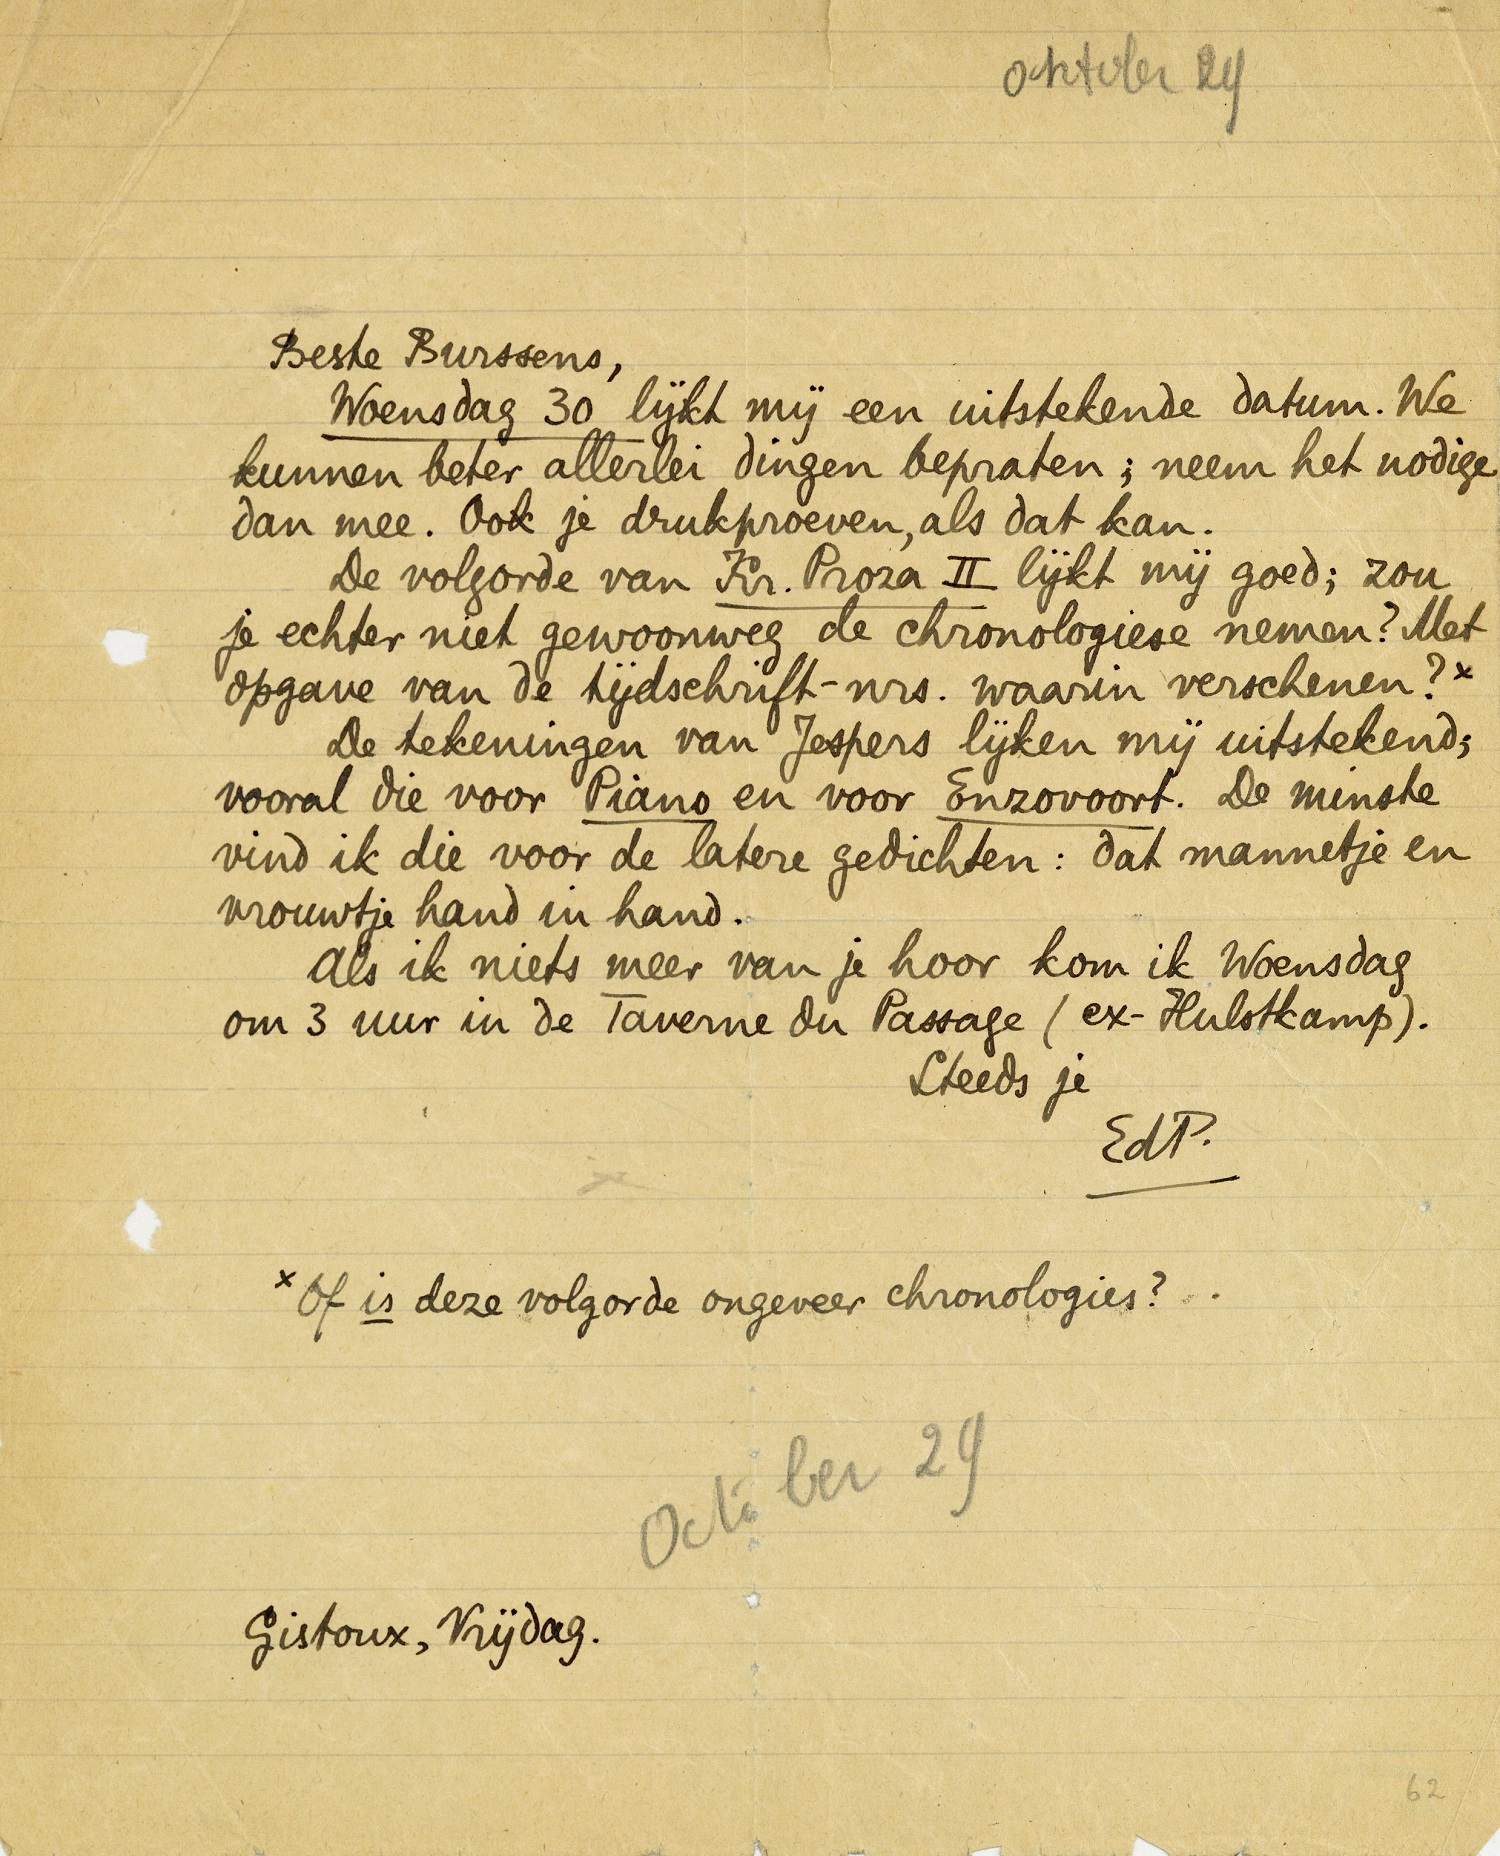 oktober 29
Beste Burssens,
Woensdag 30 lijkt mij een uitstekende datum. We
kunnen beter allerlei dingen bepraten; neem het nodige
dan mee. Ook je drukproeven, als dat kan.
De volgorde van Kr. Proza II lijkt mij goed; zou
je echter niet gewoonweg de chronologiese nemen? Met
opgave van de tijdschrift-nrs. waarin verschenen?x
De tekeningen van Jespers lijken mij uitstekend;
vooral die voor Piano en voor Enzovoort. De minste
vind ik die voor de latere gedichten: dat mannetje en
vrouwtje hand in hand.
Als ik niets meer van je hoor kom ik Woensdag
om 3 uur in de Taverne du Passage (ex-Hulstkamp).
Steeds je
EdP.
x Of is deze volgorde ongeveer chronologies?
October 29
Gistoux, Vrijdag.
62